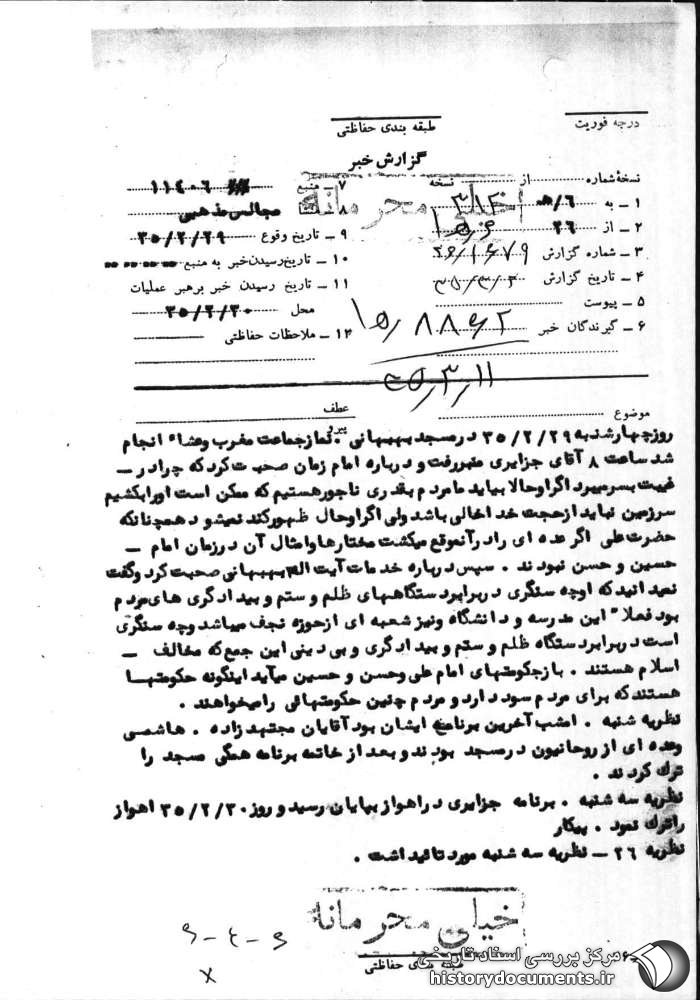 درجه فوریت
طبقه بندی حفاظتی
گزارش خبر
خیلی محرمانه
نسخهٔ شماره از نسخه
۱ – به ۳۸۲ / ۶ ه‍
۲ – از ۲۶
۳ – شماره گزارش
۴ – تاریخ گزارش ۳۵/۳/۳
۵ – پیوست
۶ – گیرندگان خبر
۷ – منبع ۱۱۴۰۶
۸ – منشا مجالس مذهبی
۹ – تاریخ وقوع ۳۵/۲/۲۹
۱۰ – تاریخ رسیدن خبر به منبع
۱۱ – تاریخ رسیدن خبر برهبر عملیات
محل ۳۵/۲/۳۰
۱۲ – ملاحظات حفاظتی
۱۵/۸۸۶۲
۲۵/۳/۱۱
موضوع
عطف
پیرو
روز چهارشنبه ۳۵/۲/۲۹ در مسجد بهبهانی . نماز جماعت مغرب و عشاء انجام
شد ساعت ۸ آقای جزایری منبر رفت و درباره امام زمان صحبت کرد که چرا در –
غیبت بسر میبرد اگر او حالا بیاید ما مردم بقدری ناجور هستیم که ممکن است او را بکشیم
سرزمین نباید از حجت خدا خالی باشد ولی اگر او حال ظهور کند نمیشود همچنانکه
حضرت علی اگر عده ای را در آنموقع میکشت مختارها و امثال آن در زمان امام –
حسین و حسن نبودند . سپس درباره خدمات آیت اله بهبهانی صحبت کرد و گفت
نمیدانید که او چه سنگری در برابر دستگاههای ظلم و ستم و بیدادگری های مردم
بود فعلا" این مدرسه و دانشگاه و نیز شعبه ای از حوزه نجف میباشد و چه سنگری
است در برابر دستگاه ظلم و ستم و بیدادگری و بی دینی این جمع که مخالف –
اسلام هستند . باز حکومتهای امام علی و حسن و حسین میآید اینگونه حکومتها
هستند که برای مردم سود دارد و مردم چنین حکومتهائی را میخواهند .
نظریه شنبه . امشب آخرین برنامه ایشان بود آقایان مجتهدزاده . هاشمی
وعده ای از روحانیون در مسجد بودند و بعد از خاتمه برنامه همگی مسجد را
ترک کردند .
نظریه سه شنبه . برنامه جزایری در اهواز بپایان رسید و روز ۳۵/۲/۳۰ اهواز
را ترک نمود . پیکار
نظریه ۲۶ – نظریه سه شنبه مورد تائید است .
خیلی محرمانه
طبقه بندی حفاظتی
مرکز بررسی اسناد تاریخی
historydocuments.ir